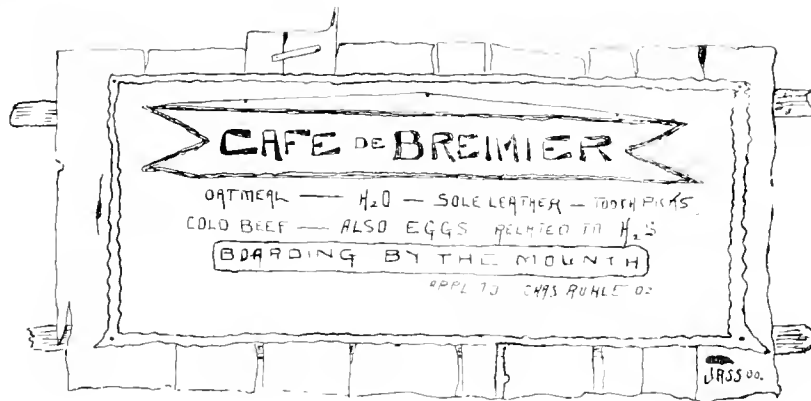 CAFE DE BREIMIER
OATMEAL — H₂O — SOLE LEATHER — TOOTH PICKS
COLD BEEF — ALSO EGGS RELATED TO H₂S
BOARDING BY THE MOUNTH
APPL TO CHAS RUHLE
JASS 00.